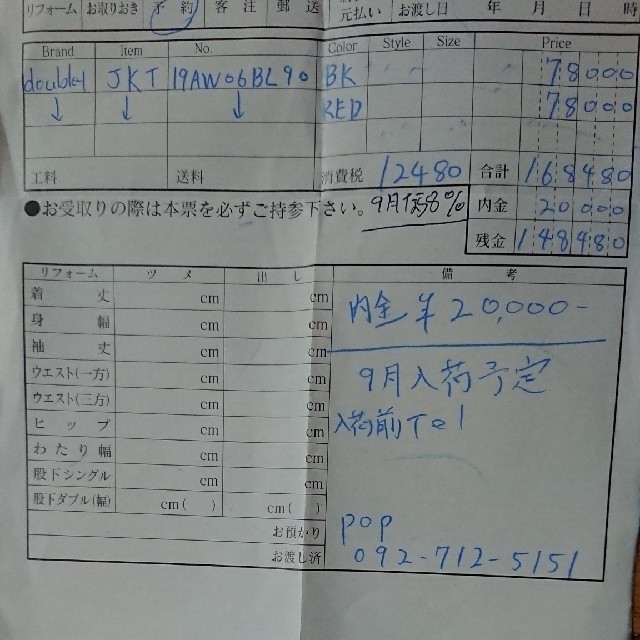 リフォーム お取りおき 予約 客注 郵送 元払い お渡し日 年 月 日 時
Brand Item No. Color Style Size Price
JKT 19AW06BL90 BK 78000
↓ ↓ ↓ RED 78000
工料 送料 消費税 12480 合計 168480
●お受取りの際は本票を必ずご持参下さい。 9月 8% 内金 20000
残金 148480
リフォーム ツメ 出し 備考
着丈 cm cm
身幅 cm cm
袖丈 cm cm
ウエスト(一方) cm cm
ウエスト(三方) cm cm
ヒップ cm cm
わたり幅 cm cm
股下シングル cm cm
股下ダブル(幅) cm( ) cm( )
お預かり
お渡し済
内金 ¥20,000-
9月入荷予定
入荷前Tel
pop
092-712-5151